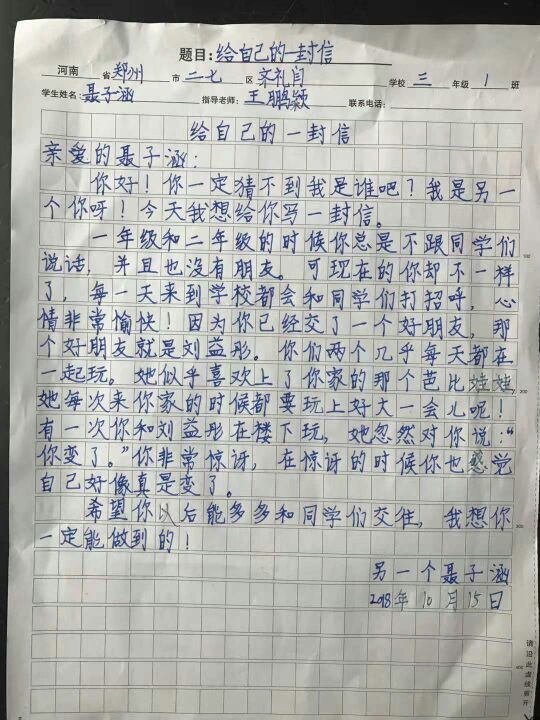 题目:给自己的一封信
河南 省 郑州 市 二七 区 文礼闫 学校 三 年级 1 班
学生姓名: 聂子涵 指导老师: 王鹏颖 联系电话:
给自己的一封信
亲爱的聂子涵:
你好!你一定猜不到我是谁吧?我是另一
个你呀!今天我想给你写一封信。
一年级和二年级的时候你总是不跟同学们
说话,并且也没有朋友。可现在的你却不一样
了,每一天来到学校都会和同学们打招呼,心
情非常愉快!因为你已经交了一个好朋友,那
个好朋友就是刘益彤。你们两个几乎每天都在
一起玩。她似乎喜欢上了你家的那个芭比娃娃,
她每次来你家的时候都要玩上好大一会儿呢!
有一次你和刘益彤在楼下玩,她忽然对你说:“
你变了。”你非常惊讶,在惊讶的时候你也感觉
自己好像真是变了。
希望你以后能多多和同学们交往,我想你
一定能做到的!
另一个聂子涵
2018年10月15日
100
200
300
400
请沿此虚线剪开